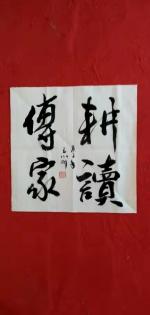 耕讀
傳家